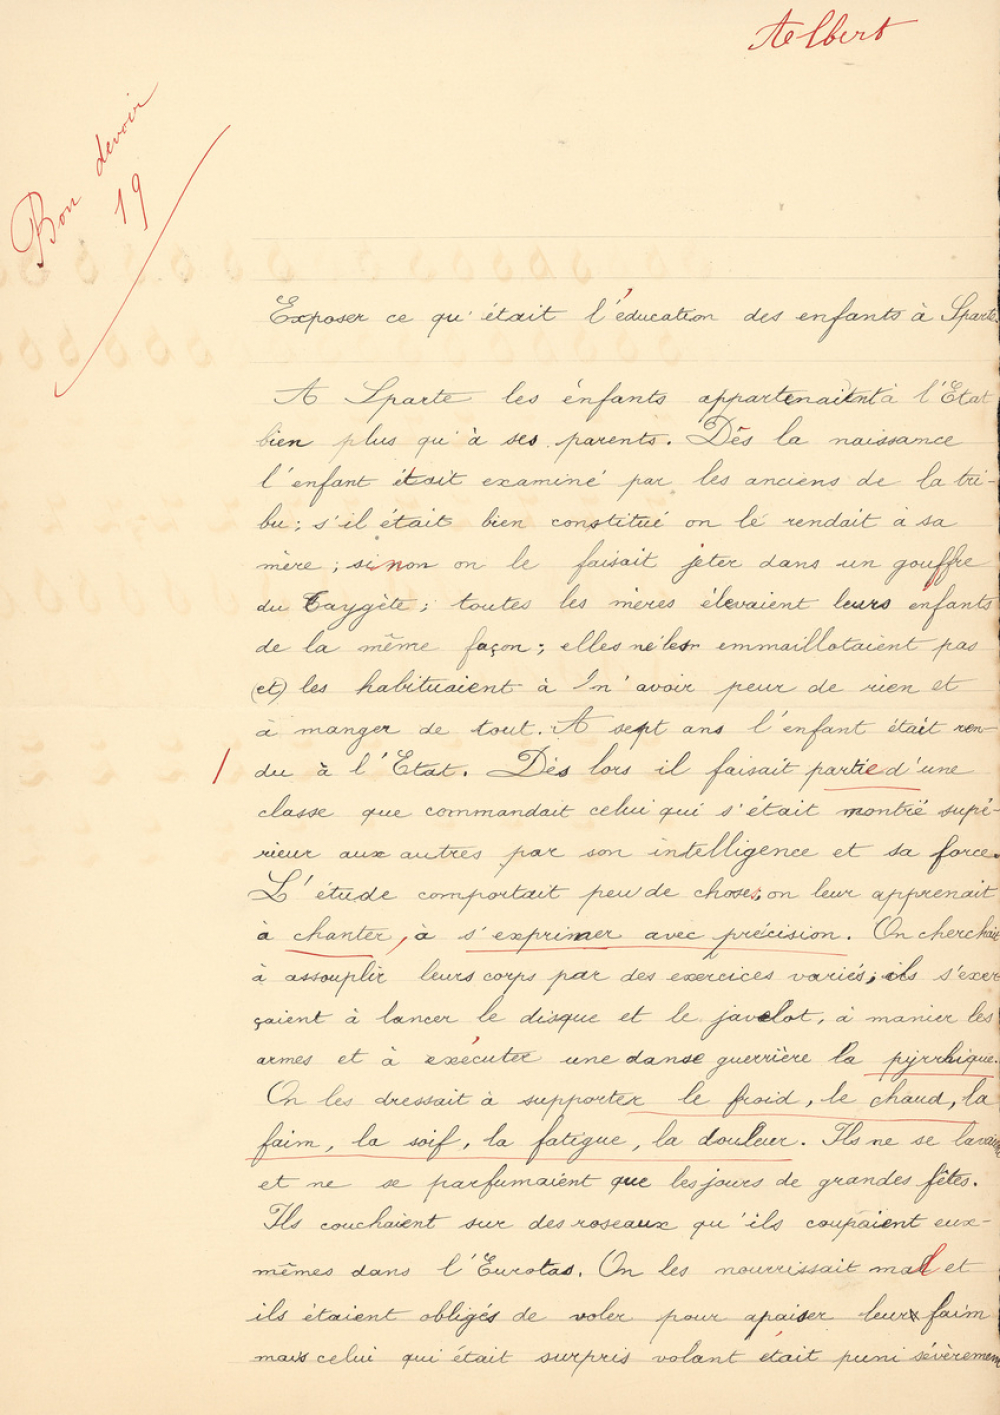 Albert
Bon devoir
19
Exposer ce qu'était l'éducation des enfants à Sparte.
A Sparte les enfants appartenaient à l'Etat
bien plus qu'à ses parents. Dès la naissance
l'enfant était examiné par les anciens de la tri-
bu ; s'il était bien constitué on le rendait à sa
mère ; sinon on le faisait jeter dans un gouffre
du Taygète ; toutes les mères élevaient leurs enfants
de la même façon ; elles ne les emmaillotaient pas
(et) les habituaient à n'avoir peur de rien et
à manger de tout. A sept ans l'enfant était ren-
du à l'Etat. Dès lors il faisait partie d'une
classe que commandait celui qui s'était montré supé-
rieur aux autres par son intelligence et sa force.
L'étude comportait peu de choses, on leur apprenait
à chanter, à s'exprimer avec précision. On cherchait
à assouplir leurs corps par des exercices variés ; ils s'exer
çaient à lancer le disque et le javelot, à manier les
armes et à exécuter une danse guerrière la pyrrhique.
On les dressait à supporter le froid, le chaud, la
faim, la soif, la fatigue, la douleur. Ils ne se lavaient
et ne se parfumaient que les jours de grandes fêtes.
Ils couchaient sur des roseaux qu'ils coupaient eux-
mêmes dans l'Eurotas. On les nourrissait mal et
ils étaient obligés de voler pour apaiser leur faim
mais celui qui était surpris volant était puni sévèremen